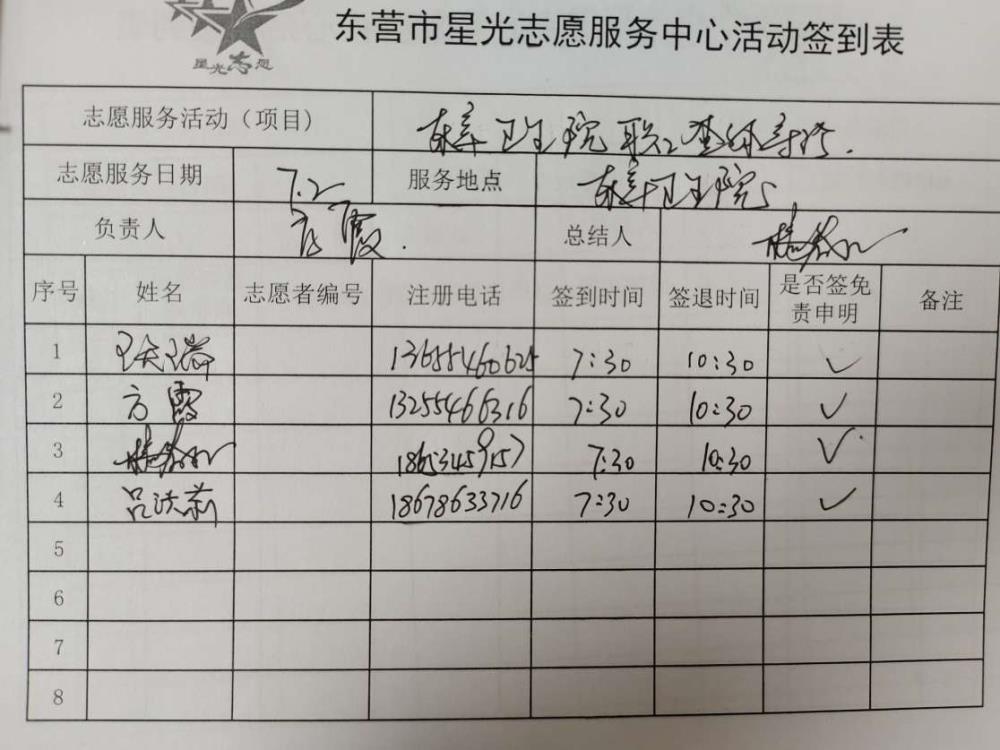 星光志愿
东营市星光志愿服务中心活动签到表
志愿服务活动（项目） 卫生院职工查体导诊.
志愿服务日期 7.2 服务地点 卫生院
负责人 方霞. 总结人
序号 姓名 志愿者编号 注册电话 签到时间 签退时间 是否签免责申明 备注
1 13655460625 7:30 10:30 ✓
2 方霞 13255466316 7:30 10:30 ✓
3 18653459157 7:30 10:30 ✓
4 吕洪莉 18678633716 7:30 10:30 ✓
5
6
7
8